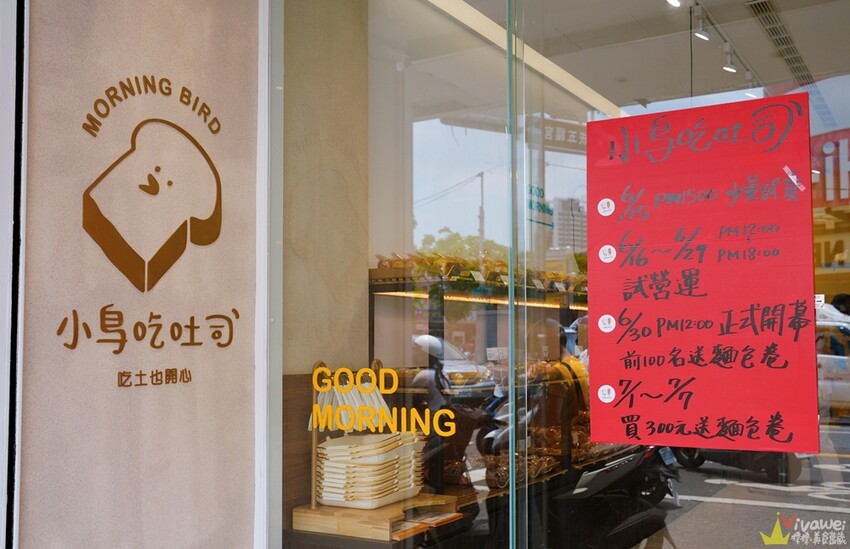 MORNING BIRD
小鳥吃吐司
吃土也開心
GOOD
MORNING
GOOD
MORNING
小鳥吃吐司
PM15:00 少量販賣
6/26~6/29 PM12:00
PM18:00
試營運
6/30 PM12:00 正式開幕
前100名送麵包卷
7/1~7/7
買300元送麵包卷
Vivawei